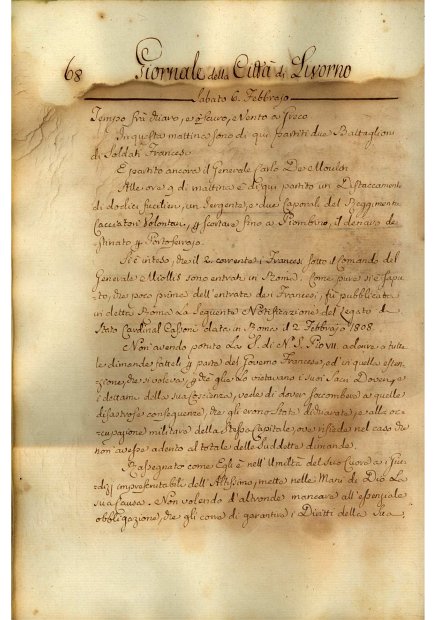 68 Giornale della Città di Livorno
Sabato 6. Febbrajo
Tempo frà chiaro, e oscuro, e Vento a freco
In questa mattina sono di qui partiti due Battaglioni
di Soldati Francesi
E partito ancora il Generale Carlo De Moulon
Alle ore 9 di mattina è di qui partito un Distaccamento
di dodici fucilieri, un Sergente, e due Caporali del Reggimento
Cacciatori Volontari, p scortare fino a Piombino, il denaro de-
stinato p Portoferrajo.
Si è inteso, che il 2 corrente i Francesi sotto il Comando del
Generale Miollis sono entrati in Roma. Come pure si è sapu-
to, che poco prima dell'entrata dei Francesi, fù pubblicata
in detta Roma la Seguente Notificazione del Legato di
Stato Cardinal Casoni data in Roma il 2 Febbrajo 1808.
Non avendo potuto La S. di N. S. Pio VII. aderire a tutte
le dimande fatteli p parte del Governo Francese, ed in quella esten-
zione, che si voleva, p che glielo vietavano i suoi Sacri Doveri, e
i dettami della sua Coscienza, vede di dover soccombere a quelle
disastrose conseguenze, che gli erono state dichiarate, e alla oc-
cupazione militare della stessa Capitale, ove risiede nel caso che
non avesse aderito al totale delle suddette dimande.
Rassegnato come Egli è nell'Umiltà del Suo Cuore a i Giu-
dizj imprescrutabili dell'Altissimo, mette nelle Mani di Dio La
sua Causa. Non volendo d'altronde mancare all'essenziale
obbligazione, che gli corre di garantire i Diritti della Sua